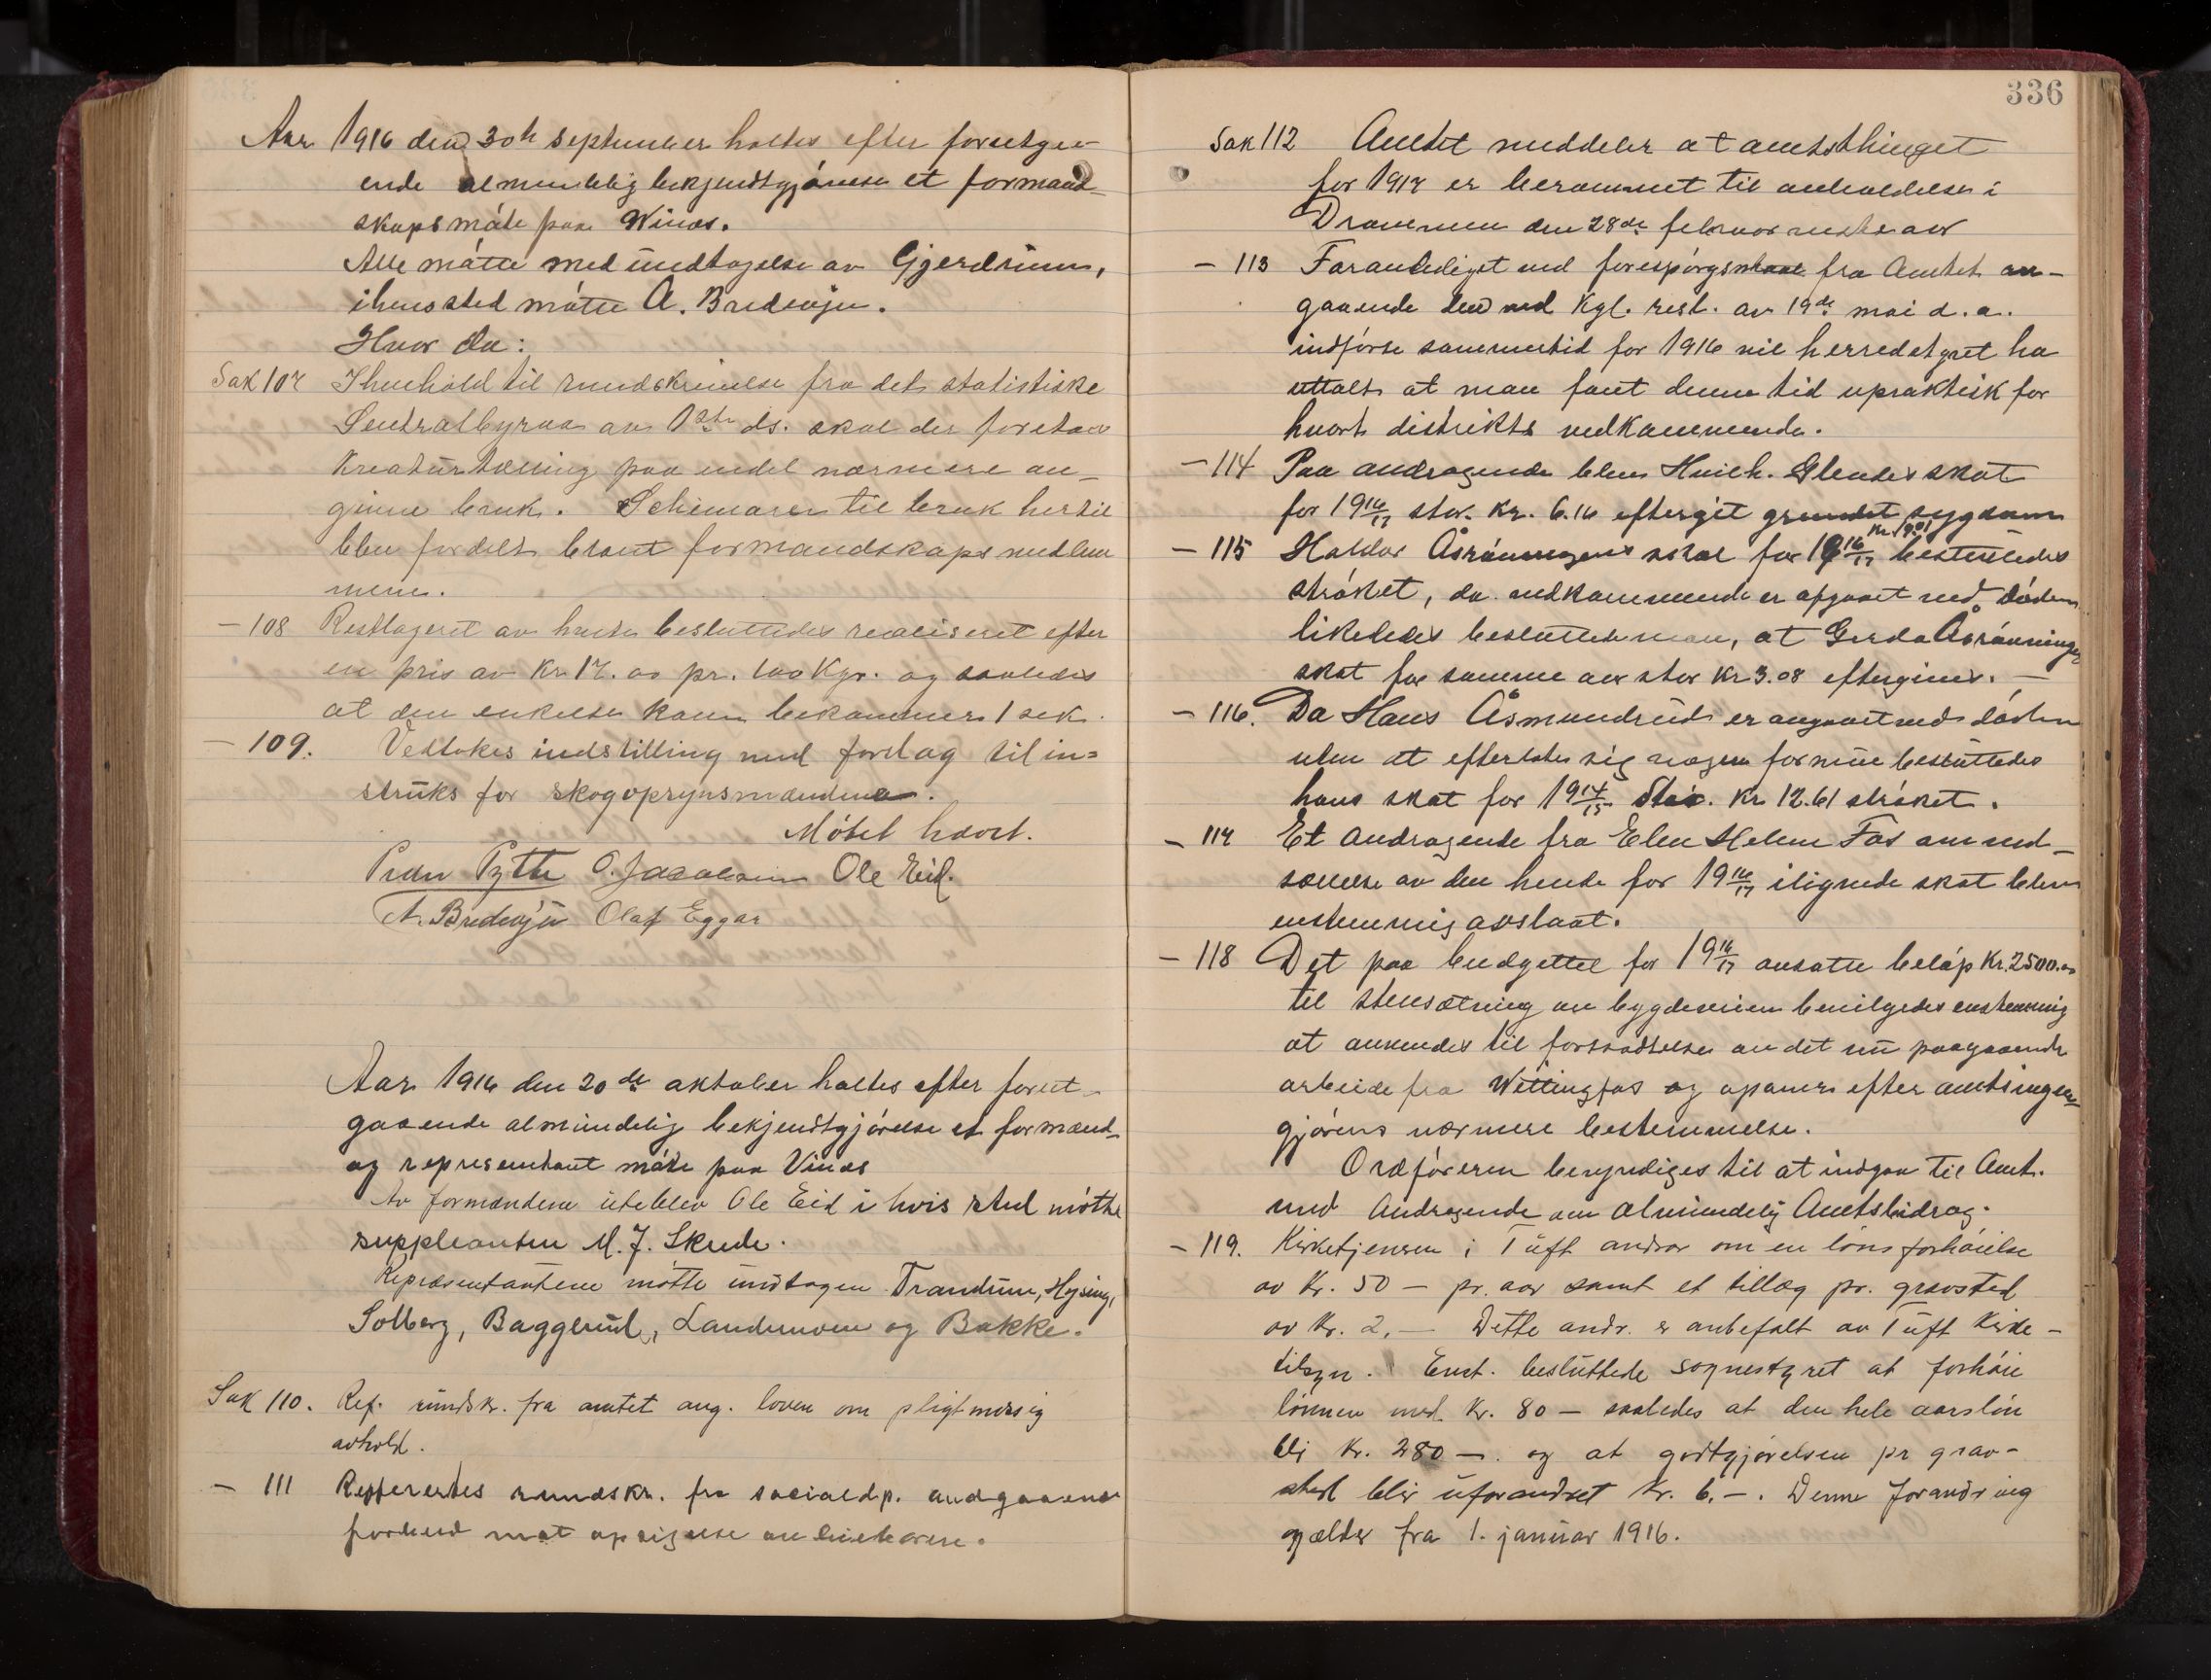 Aar 1916 den 30te september holtes efter forutgaa-
ende almindelig bekjendtgjørelse et formand-
skapsmøte paa Winæs.
Alle møtte med undtagelse av Gjerdrum,
i hans sted møtte A. Bredevjen.
Hvor da:
Sak 107 I henhold til rundskrivelse fra det statistiske
Sentralbyraa av 1ste ds. skal der foretaes
kreaturtælling paa endel nærmere an-
givne bruk. Schemaer til bruk hertil
blev fordelt blant formandskapsmedlem
mene.
– 108 Restlageret av hvete besluttedes realiseret efter
en pris av Kr. 17.00 pr. 100 Kgr. og saaledes
at den enkelte kan bekomme 1 sek.
– 109. Vedtokes indstilling med forslag til in=
struks for skogopsynsmændene.
Møtet hævet.
Peder Pytte O. Jacobsen Ole Eid.
A. Bredevjen Olaf Eggar
Aar 1916 den 20de oktober holtes efter forut-
gaaende almindelig bekjendtgjørelse et formand-
og representant møte paa Vinæs
Av formændene uteblev Ole Eid i hvis sted møtte
suppleanten M. J. Skrede.
Repræsentantene møtte undtagen Trandum, Hejsing,
Solberg, Baggerud, Landemoen og Bakke.
Sak 110. Ref. rundskr. fra amtet ang. loven om pligtmæssig
avhold.
– 111 Refferertes rundskr. fra socialdp. andgaaende
forbud mot opsigelse av leieboere.
336
Sak 112 Amtet meddeler at amtsthinget
for 1917 er berammet til avholdelse i
Drammen den 28de februar næste aar
– 113 Foranlediget ved forespørgsmaal fra Amtet an-
gaaende den ved Kgl. resl. av 19de mai d.a.
indførte sommertid for 1916 vil herredstyret ha
uttalt at man fant denne tid upraktisk for
hvort distrikts vedkommende.
– 114 Paa andragende blev Hvich. Glendes skat
for 1916/17 stor. Kr. 6.16 eftergit grundet sygdom
– 115 Haldor Åsrønningens skat for 1916/17 Kr. 19.01 besluttedes
strøket, da vedkommende er afgaaet ved døden
likeledes besluttet man, at Gerda Åsrønningens
skat for samme aar stor Kr 3.08 eftergives. –
– 116. Da Hans Åsmundrud er avgaaet ved døden
uten at efterlate sig nogen formue besluttedes
hans skat for 1914/15 Stor. Kr 12.61 strøket.
– 117 Et andragende fra Elen Helene Fos om ned-
sættelse av den hende for 1916/17 ilignede skat blev
enstemmig avslaat.
– 118 Det paa budgettet for 1916/17 ansatte beløp Kr. 2500.00
til stensætning av bygdeveien bevilgedes enstemmig
at anvendes til fortsættelse av det nu paagaaende
arbeide fra Wettingfos og opover efter amtsingen-
gjørens nærmere bestemmelse.
Ordføreren bemyndiges til at indgaa til Amt.
med Andragende om almindelig Amtsbidrag.
– 119. Kirketjeneren i Tuft andrar om en lønsforhøielse
av Kr. 50 – pr. aar samt et tillæg pr. gravsted
av Kr. 2,– Dette andr. er anbefalt av Tuft Kirke-
tilsyn. Enst. besluttede sognestyret at forhøie
lønnen med Kr. 80 – saaledes at den hele aarsløn
bli Kr. 280 –. og at godtgjørelsen pr grav-
sted blir uforandret Kr. 6.–. Denne forandring
gjælder fra 1. januar 1916.